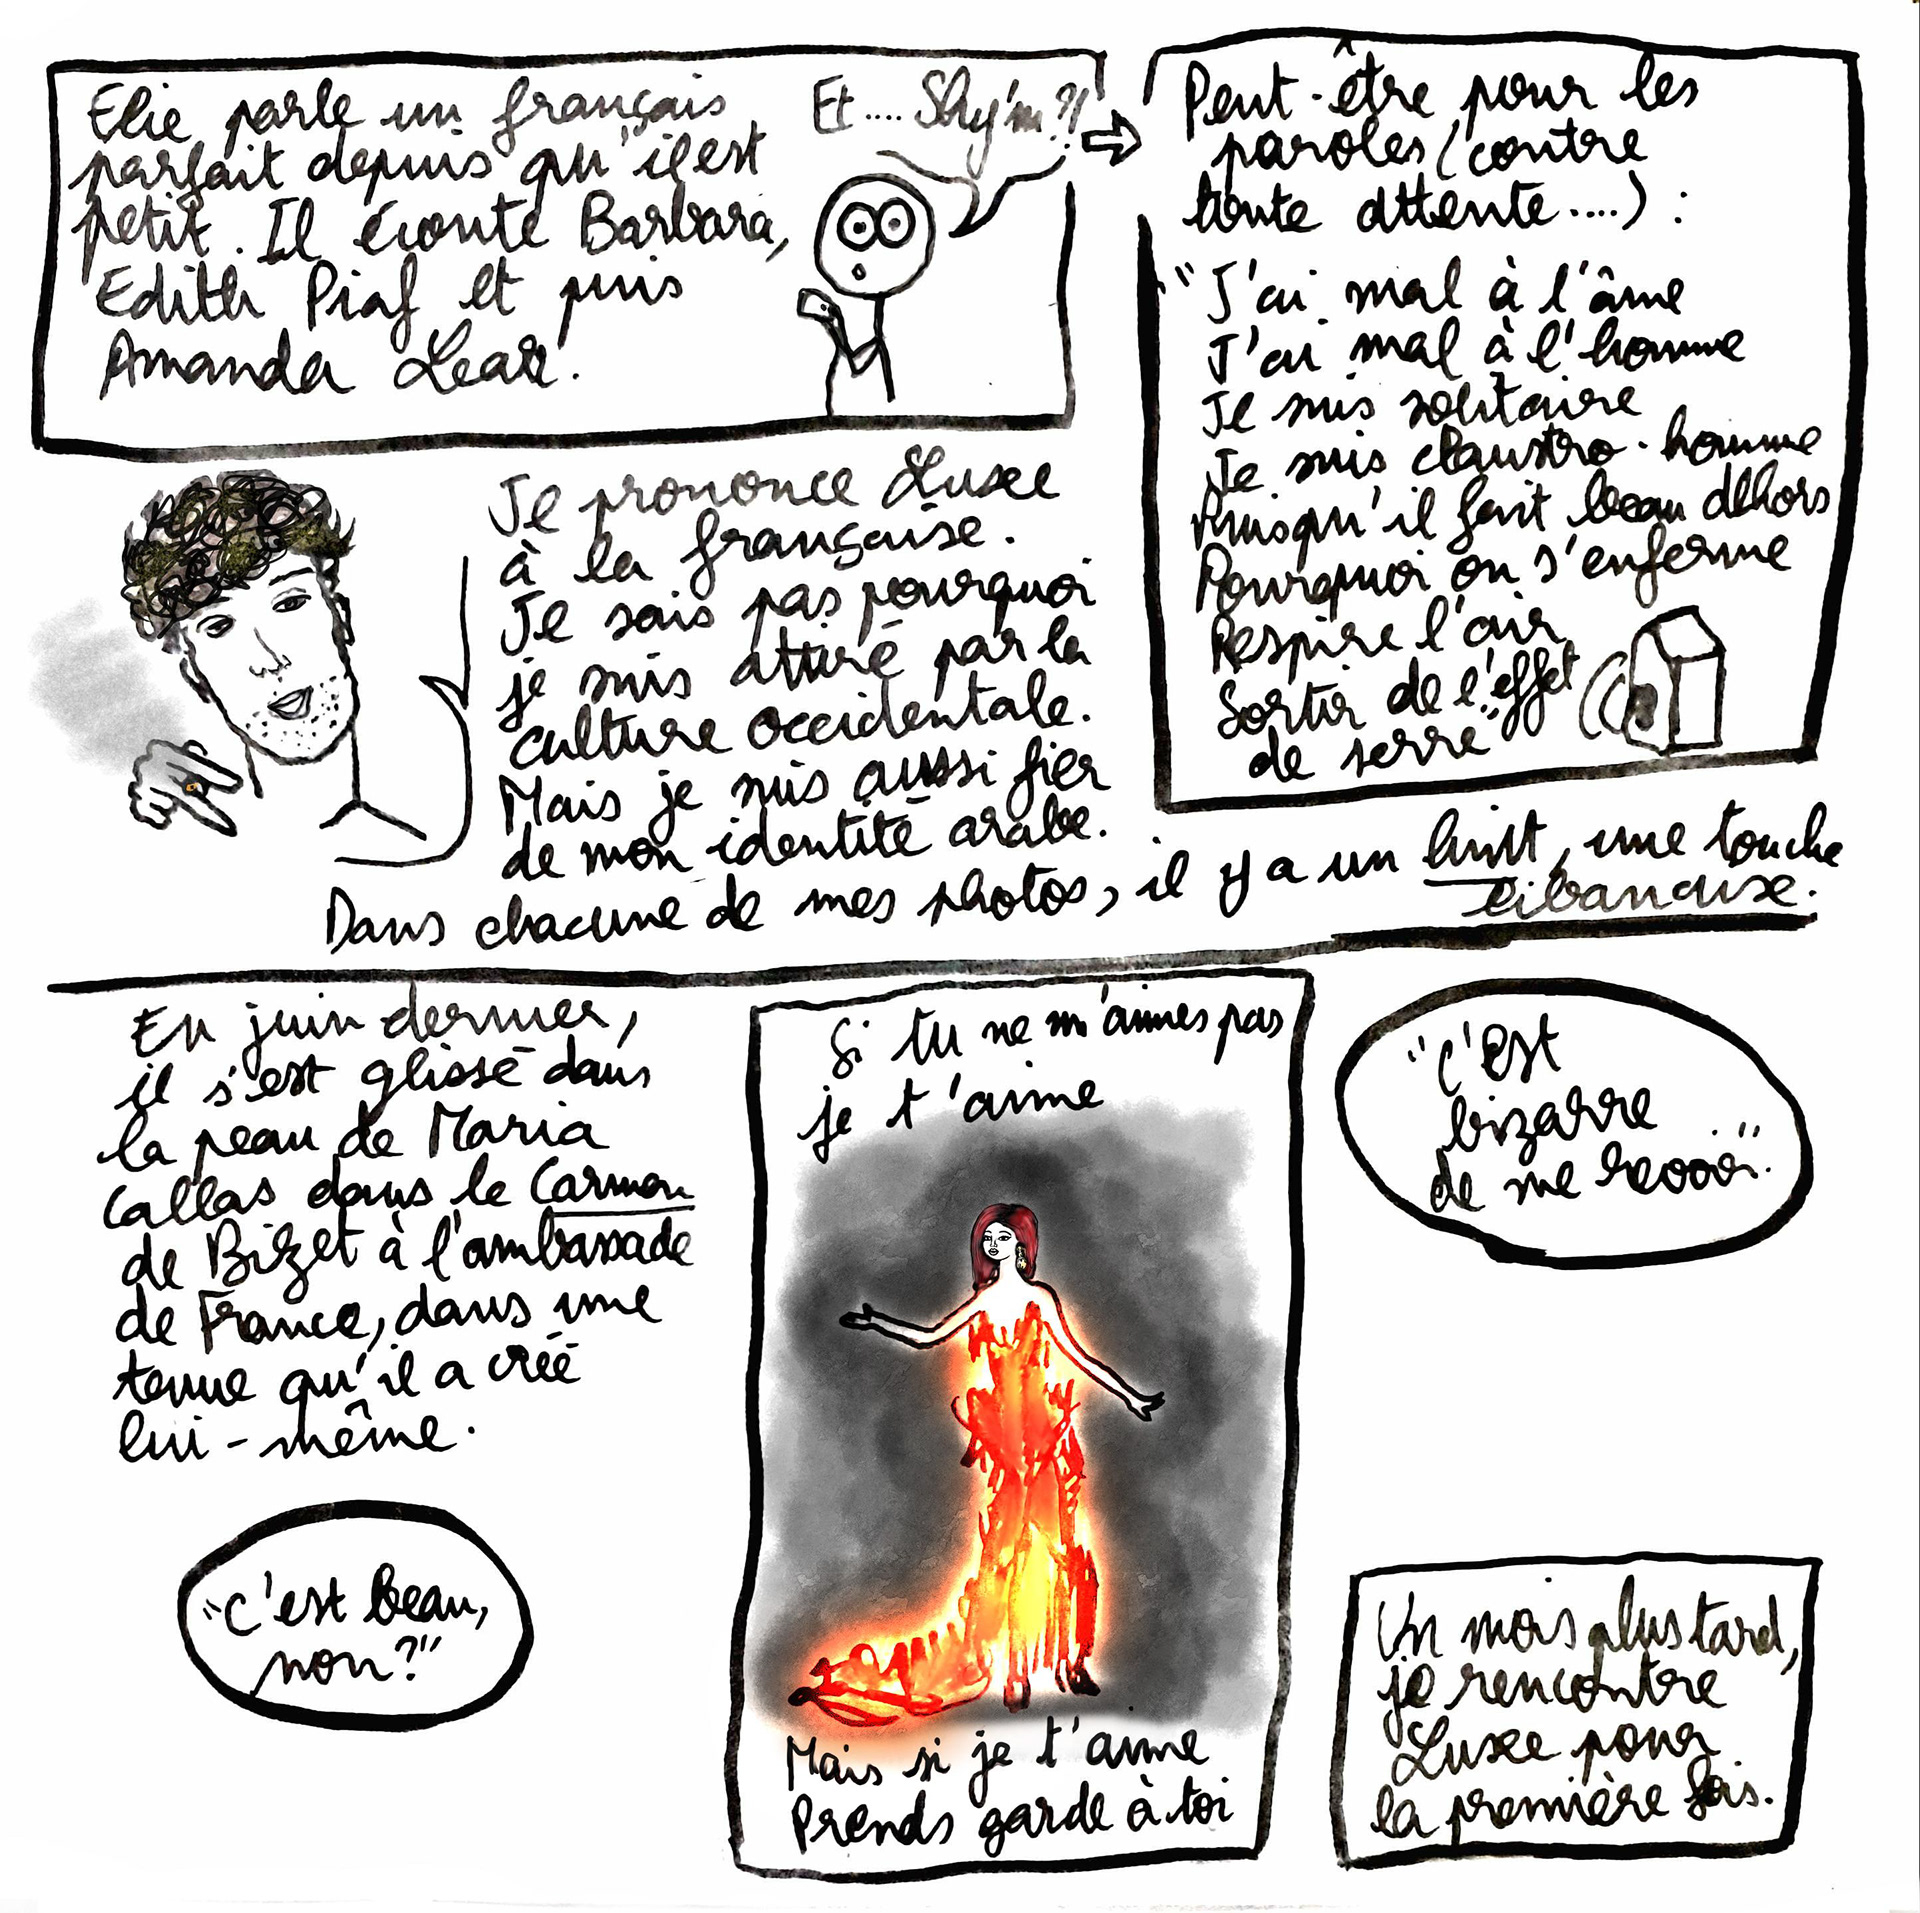 Elie parle un français
parfait depuis qu'il est
petit. Il écoute Barbara,
Edith Piaf et puis
Amanda Lear.
Et.... Shy'm ?!
Peut-être pour les
paroles (contre
toute attente....) :
"J'ai mal à l'âme
J'ai mal à l'homme
Je suis solitaire
Je suis claustro-homme
Puisqu'il fait beau dehors
Pourquoi on s'enferme
Respire l'air
Sortir de l'effet
de serre"
Je prononce Luxee
à la française.
Je sais pas pourquoi
je suis attiré par la
culture occidentale.
Mais je suis aussi fier
de mon identité arabe.
Dans chacune de mes photos, il y a un hint, une touche
libanaise.
En juin dernier,
il s'est glissé dans
la peau de Maria
Callas dans le Carmen
de Bizet à l'ambassade
de France, dans une
tenue qu'il a créé
lui-même.
"C'est beau,
non ?"
Si tu ne m'aimes pas
je t'aime
Mais si je t'aime
Prends garde à toi
"C'est
bizarre
de me
Un mois plus tard,
je rencontre
Luxee pour
la première fois.